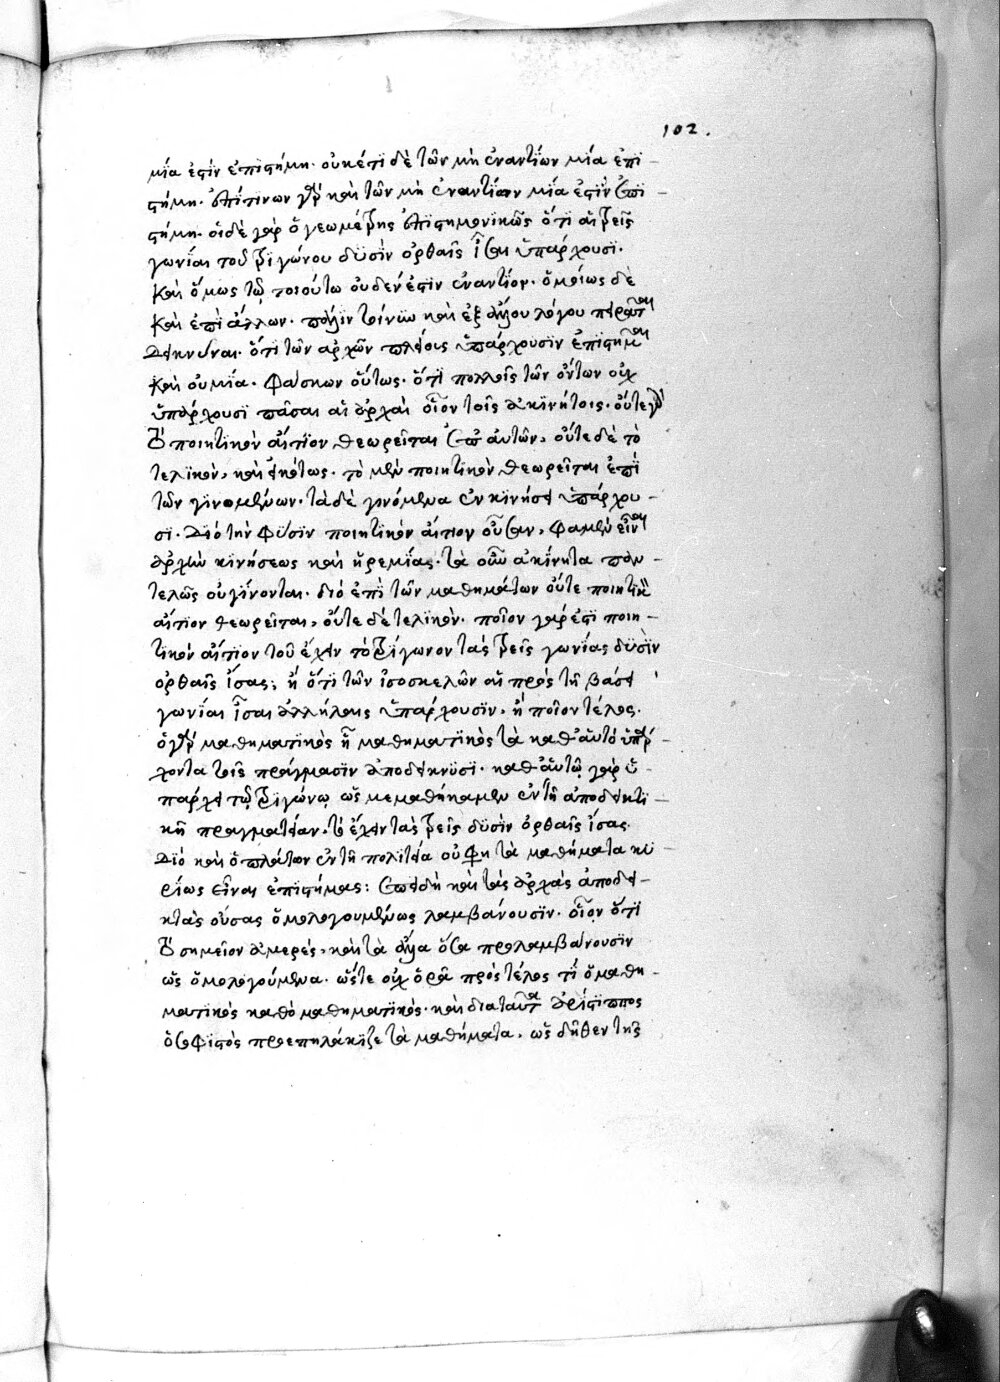 102.
μία ἐστὶν ἐπιστήμη· οὐκέτι δὲ τῶν μὴ ἐναντίων μία ἐπι-
στήμη· ἐπί τινων γὰρ καὶ τῶν μὴ ἐναντίων μία ἐστὶν ἐπι-
στήμη· οἶδε γὰρ ὁ γεωμέτρης ἐπιστημονικῶς ὅτι αἱ τρεῖς
γωνίαι τοῦ τριγώνου δυσὶν ὀρθαῖς ἴσαι ὑπάρχουσι·
καὶ ὅμως τῷ τοιούτῳ οὐδέν ἐστιν ἐναντίον· ὁμοίως δὲ
καὶ ἐπὶ ἄλλων· πάλιν τοίνυν καὶ ἐξ ἄλλου λόγου πειρᾶται
δεικνύναι· ὅτι τῶν ἀρχῶν πλείους ὑπάρχουσιν ἐπιστῆμαι
καὶ οὐ μία· φάσκων οὕτως· ὅτι πολλοῖς τῶν ὄντων οὐχ
ὑπάρχουσι πᾶσαι αἱ ἀρχαὶ οἷον τοῖς ἀκινήτοις· οὔτε γὰρ
τὸ ποιητικὸν αἴτιον θεωρεῖται ἐπ' αὐτῶν, οὔτε δὲ τὸ
τελικὸν, καὶ εἰκότως· τὸ μὲν ποιητικὸν θεωρεῖται ἐπὶ
τῶν γινομένων· τὰ δὲ γινόμενα ἐν κινήσει ὑπάρχου-
σι· διὸ τὴν φύσιν ποιητικὸν αἴτιον οὖσαν, φαμὲν εἶναι
ἀρχὴν κινήσεως καὶ ἠρεμίας· τὰ οὖν ἀκίνητα παν-
τελῶς οὐ γίνονται· διὸ ἐπὶ τῶν μαθημάτων οὔτε ποιητικὸν
αἴτιον θεωρεῖται, οὔτε δὲ τελικὸν· ποῖον γάρ ἐστι ποιη-
τικὸν αἴτιον τοῦ ἔχειν τὸ τρίγωνον τὰς τρεῖς γωνίας δυσὶν
ὀρθαῖς ἴσας; ἢ ὅτι τῶν ἰσοσκελῶν αἱ πρὸς τῇ βάσει
γωνίαι ἴσαι ἀλλήλαις ὑπάρχουσιν, ἢ ποῖον τέλος·
ὁ γὰρ μαθηματικὸς ᾗ μαθηματικὸς τὰ καθ' αὑτὸ ὑπάρ-
χοντα τοῖς πράγμασιν ἀποδείκνυσι· καθ' αὑτῷ γὰρ ὑ-
πάρχει τῷ τριγώνῳ ὡς μεμαθήκαμεν ἐν τῇ ἀποδεικτι-
κῇ πραγματείαν, τὸ ἔχειν τὰς τρεῖς δυσὶν ὀρθαῖς ἴσας·
διὸ καὶ ὁ πλάτων ἐν τῇ πολιτεία οὔ φησι τὰ μαθήματα κυ-
ρίως εἶναι ἐπιστήμας: ἐπειδὴ καὶ τὰς ἀρχὰς ἀποδει-
κτὰς οὔσας ὁμολογουμένως λαμβάνουσιν· οἷον ὅτι
τὸ σημεῖον ἀμερὲς, καὶ τὰ ἄλλα ὅσα προλαμβάνουσιν
ὡς ὁμολογούμενα· ὥστε οὐχ ὁρᾷ πρὸς τέλος τι ὁ μαθη-
ματικὸς καθὸ μαθηματικὸς· καὶ διὰ ταῦτα ἀρίστιππος
ὁ σοφιστὸς προεπηλάκιζε τὰ μαθήματα, ὡς δῆθεν τῆς